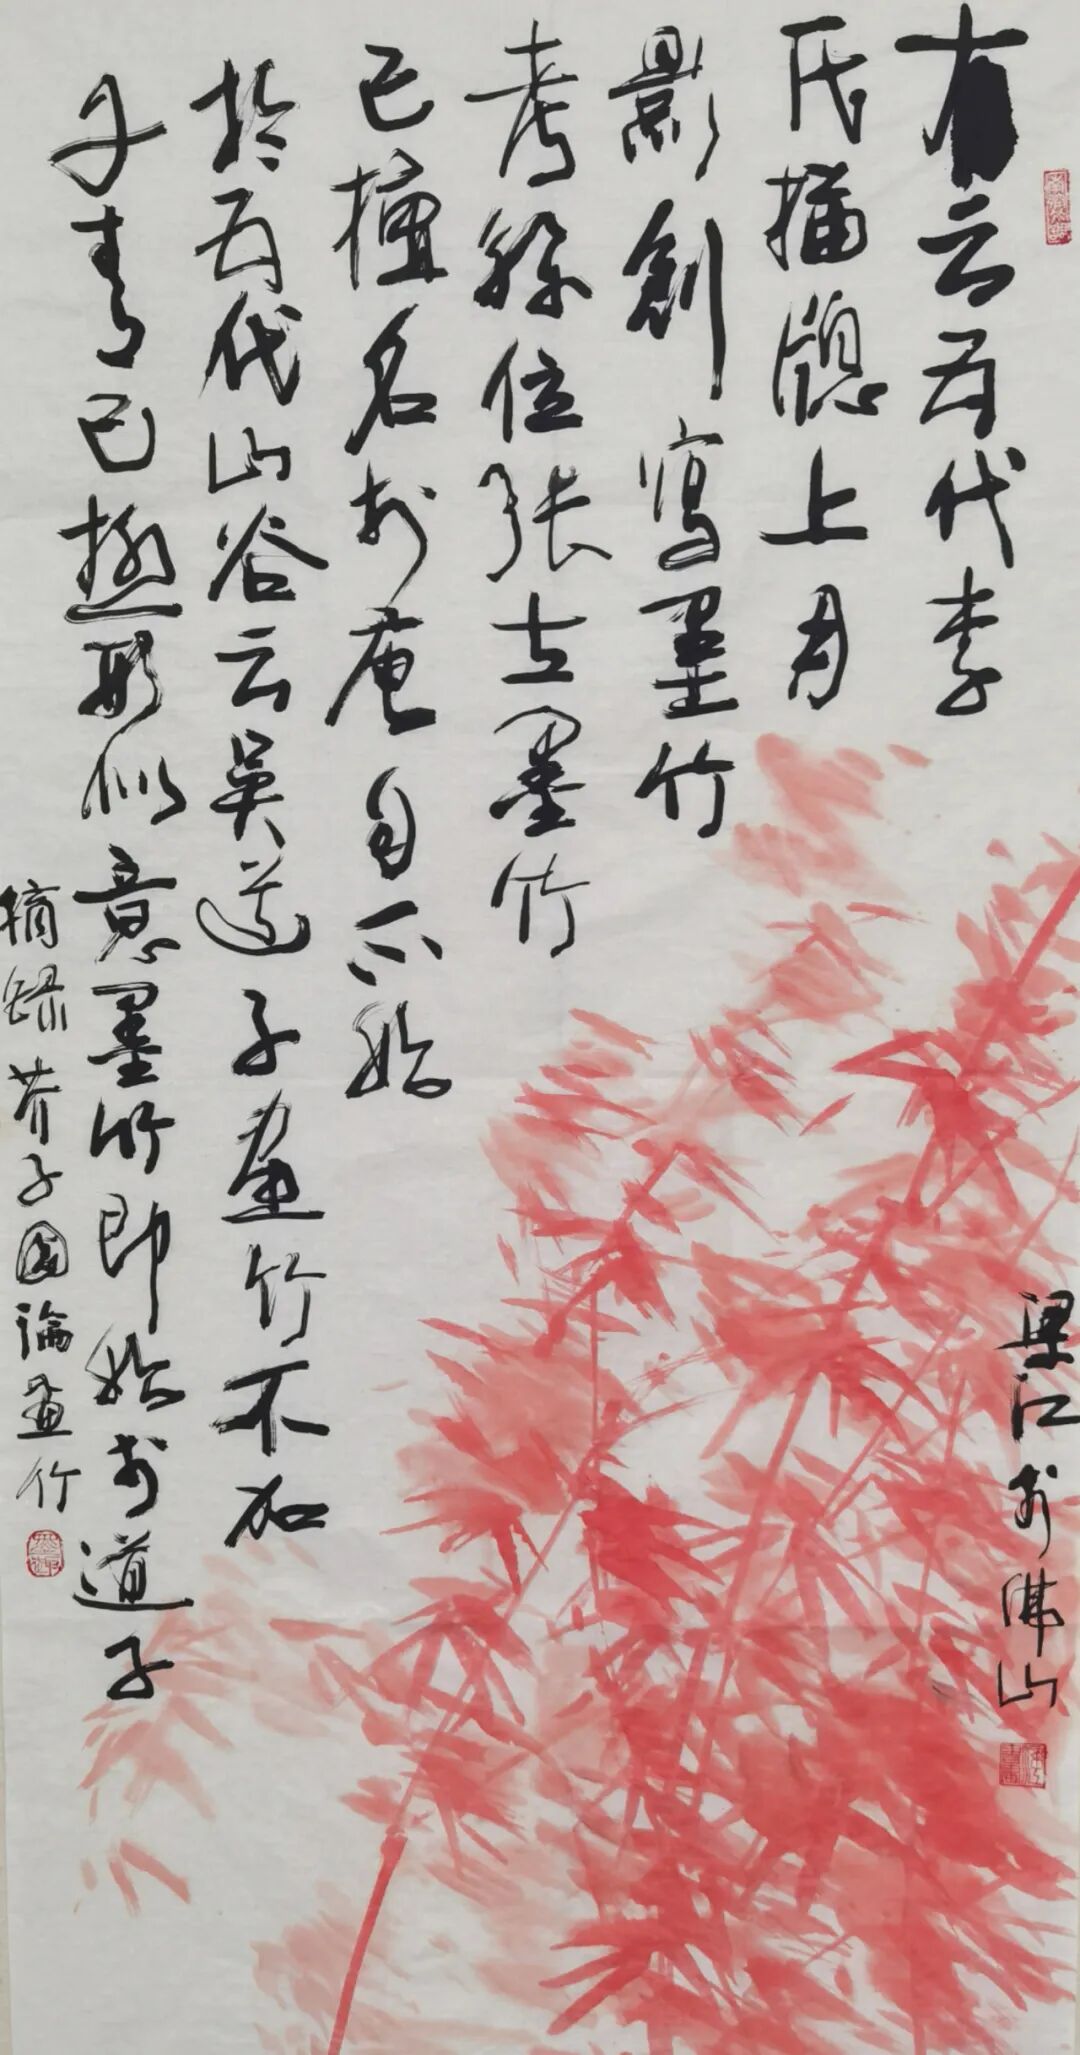 有云五代李
氏描牕上月
影創寫墨竹
考孫位張立墨竹
已擅名於唐自不始
於五代山谷云吳道子畫竹不加
丹青已極形似意墨竹即始於道子
摘録芥子園論畫竹
梁江於佛山